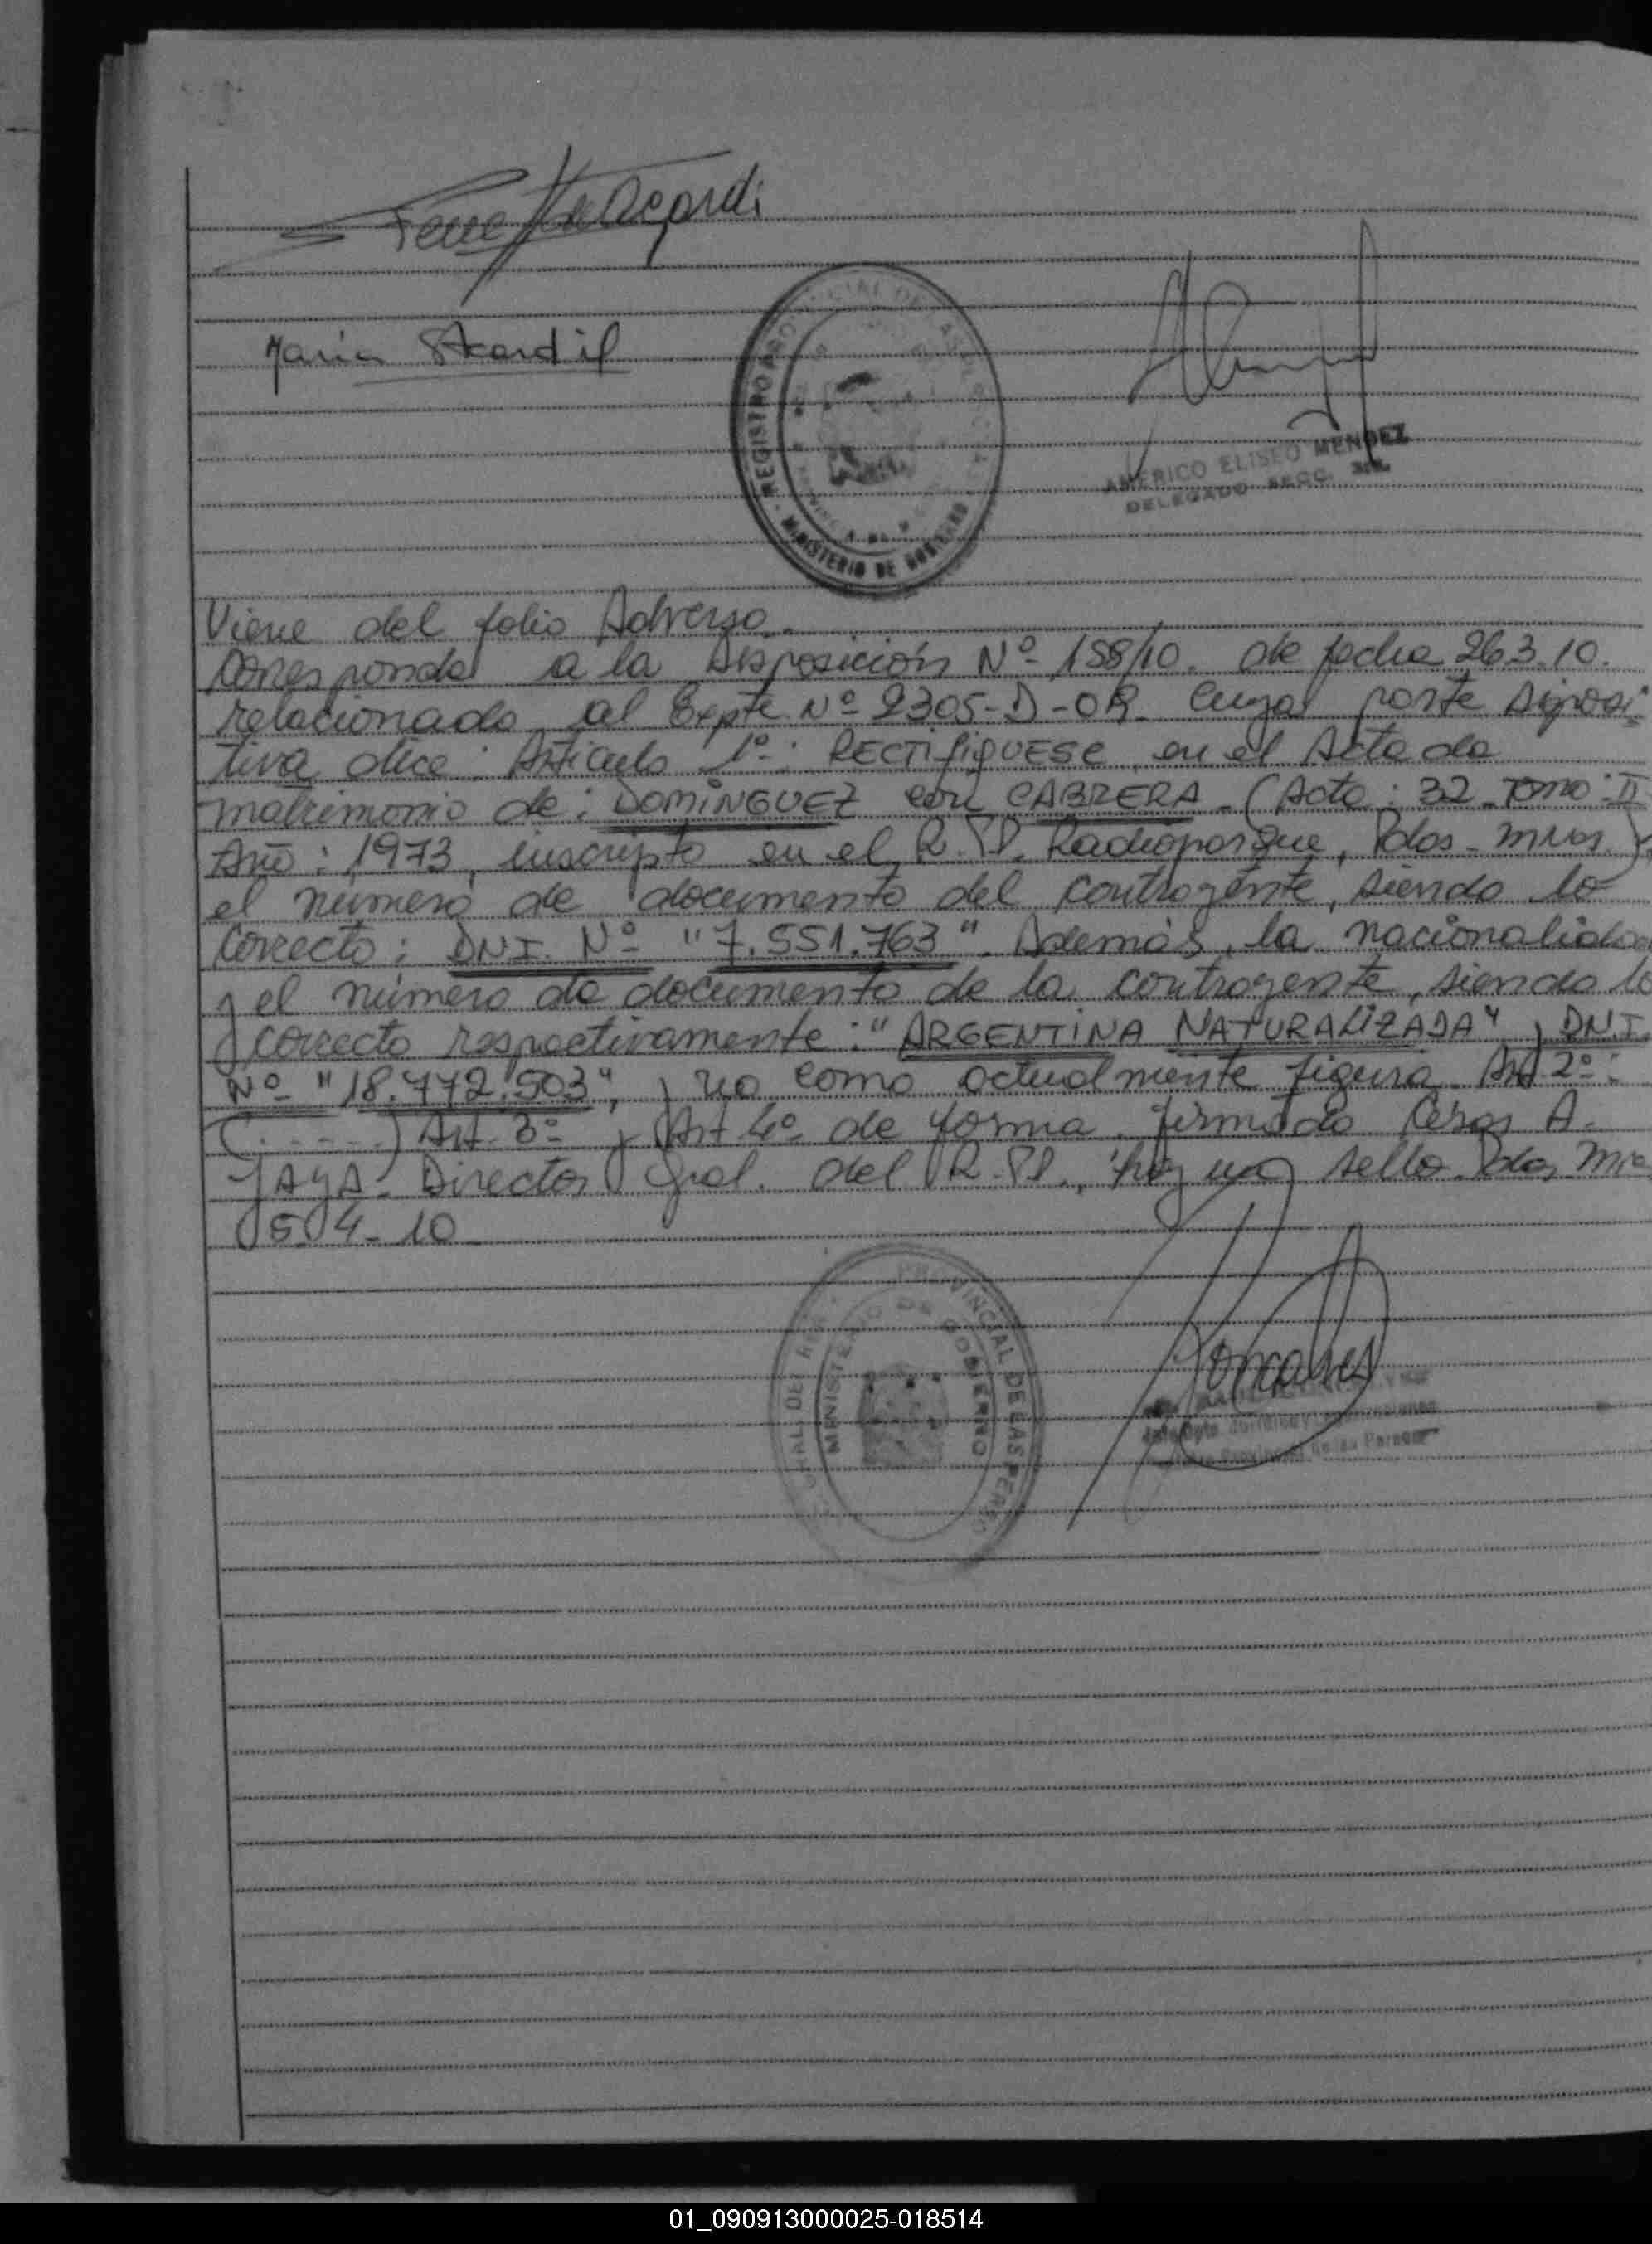 Acardi
María
REGISTRO PROVINCIAL DE LAS
MINISTERIO DE GOBIERNO
AMERICO ELISEO MENDEZ
DELEGADO SECC. 3ra.
Viene del folio Adverso.-
Corresponde a la Disposición Nº 158/10. de fecha 26.3.10.
relacionado al Expte Nº 2305-D-08. Cuya parte disposi-
tiva dice: Artículo 1º: RECTIFIQUESE, en el Acta de
matrimonio de: DOMINGUEZ con CABRERA.- (Acta: 32 Tomo: II
Año: 1973, inscripto en el R.P.P. Radioparque, Pdas. Mnes.)
el número de documento del contrayente, siendo lo
correcto: DNI. Nº "7.551.763". Además, la nacionalidad
y el número de documento de la contrayente, siendo lo
correcto respectivamente: "ARGENTINA NATURALIZADA" y DNI
Nº "18.772.503", y no como actualmente figura. Art. 2º:
(......) Art. 3º y Art. 4º de forma. firmado Cesar A.
JAYA. Director Gral. del R.P.P., hay un sello. Pdas. Mnes
5-04-10
PROVINCIAL DE LAS PERSO
MINISTERIO DE GOBIERNO
Provincial de las Personas
01_090913000025-018514